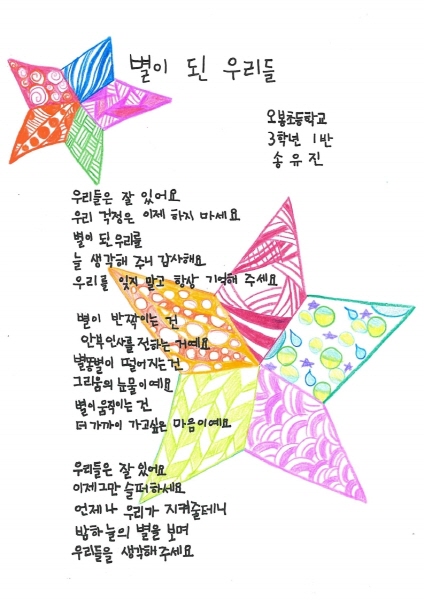 별이 된 우리들
오봉초등학교
3학년 1반
송유진
우리들은 잘 있어요
우리 걱정은 이제 하지 마세요
별이 된 우리를
늘 생각해 주니 감사해요
우리를 잊지 말고 항상 기억해 주세요
별이 반짝이는 건
안부인사를 전하는 거예요
별똥별이 떨어지는 건
그리움의 눈물이예요
별이 움직이는 건
더 가까이 가고싶은 마음이예요
우리들은 잘 있어요
이제그만 슬퍼하세요
언제나 우리가 지켜줄테니
밤하늘의 별을 보며
우리들을 생각해주세요